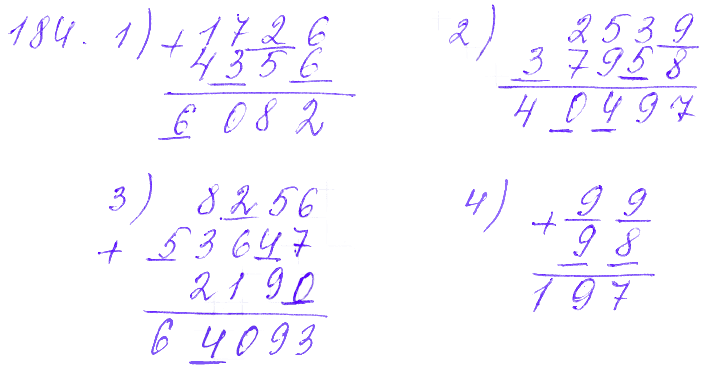 184. 1) + 1726
4356
6082
2) 2539
37958
40497
3) 8256
+ 53647
2190
64093
4) + 99
98
197